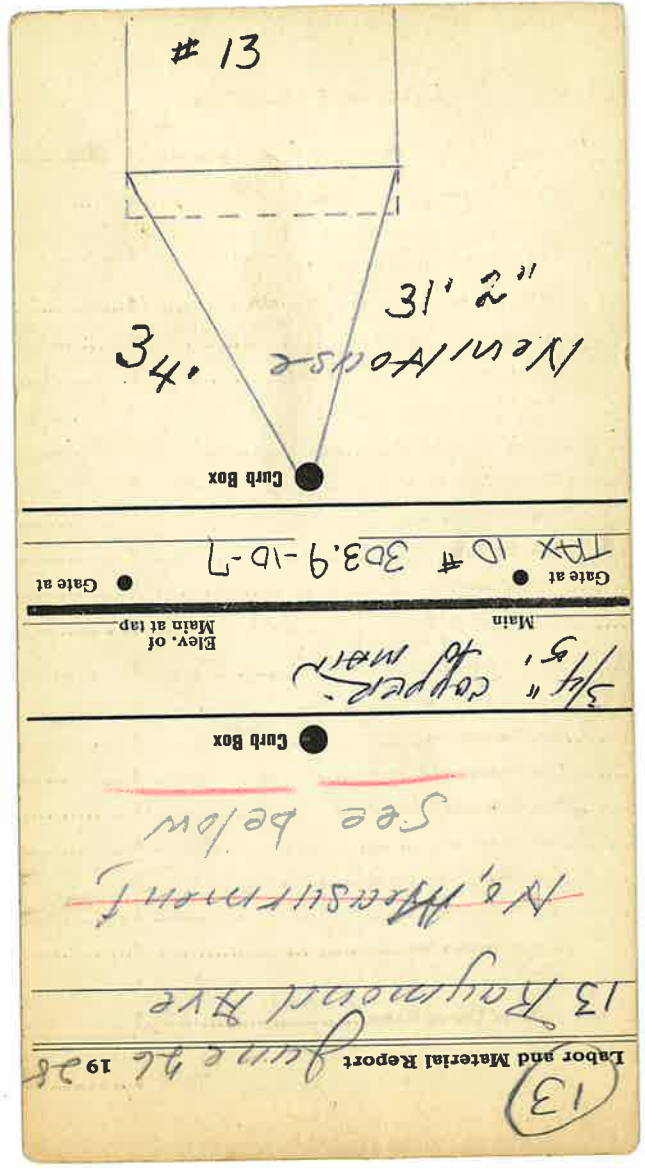 13
Labor and Material Report June 26 1928
13 Raymond Ave
No, Measurment,
See below
Curb Box
3/4" copper
5' to main
Main
Elev. of
Main at tap
Gate at
Gate at
TAX ID # 303.9-10-7
Curb Box
New House
34'
31' 2"
# 13